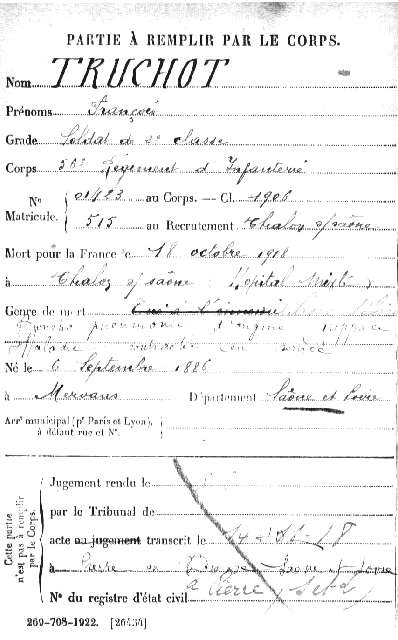 PARTIE À REMPLIR PAR LE CORPS.
Nom TRUCHOT
Prénoms François
Grade Soldat de 2e classe
Corps 56e Régiment d'Infanterie
No 01423 au Corps. — Cl. 1906
Matricule. 515 au Recrutement Chalon s/saône
Mort pour la France le 18 octobre 1918
à Chalon s/ saône Hôpital mixte
Genre de mort
Broncho pneumonie d'origine grippale
Maladie contractée en service
Né le 6 Septembre 1886
à Mervans Département Saône et Loire
Arr' municipal (pr Paris et Lyon),
à défaut rue et No.
Cette partie
n'est pas à remplir
par le Corps.
Jugement rendu le
par le Tribunal de
acte au jugement transcrit le 14-18
à Pierre en Bresse Saône et Loire
à Pierre (S et L)
No du registre d'état civil
269-708-1922. [26434]